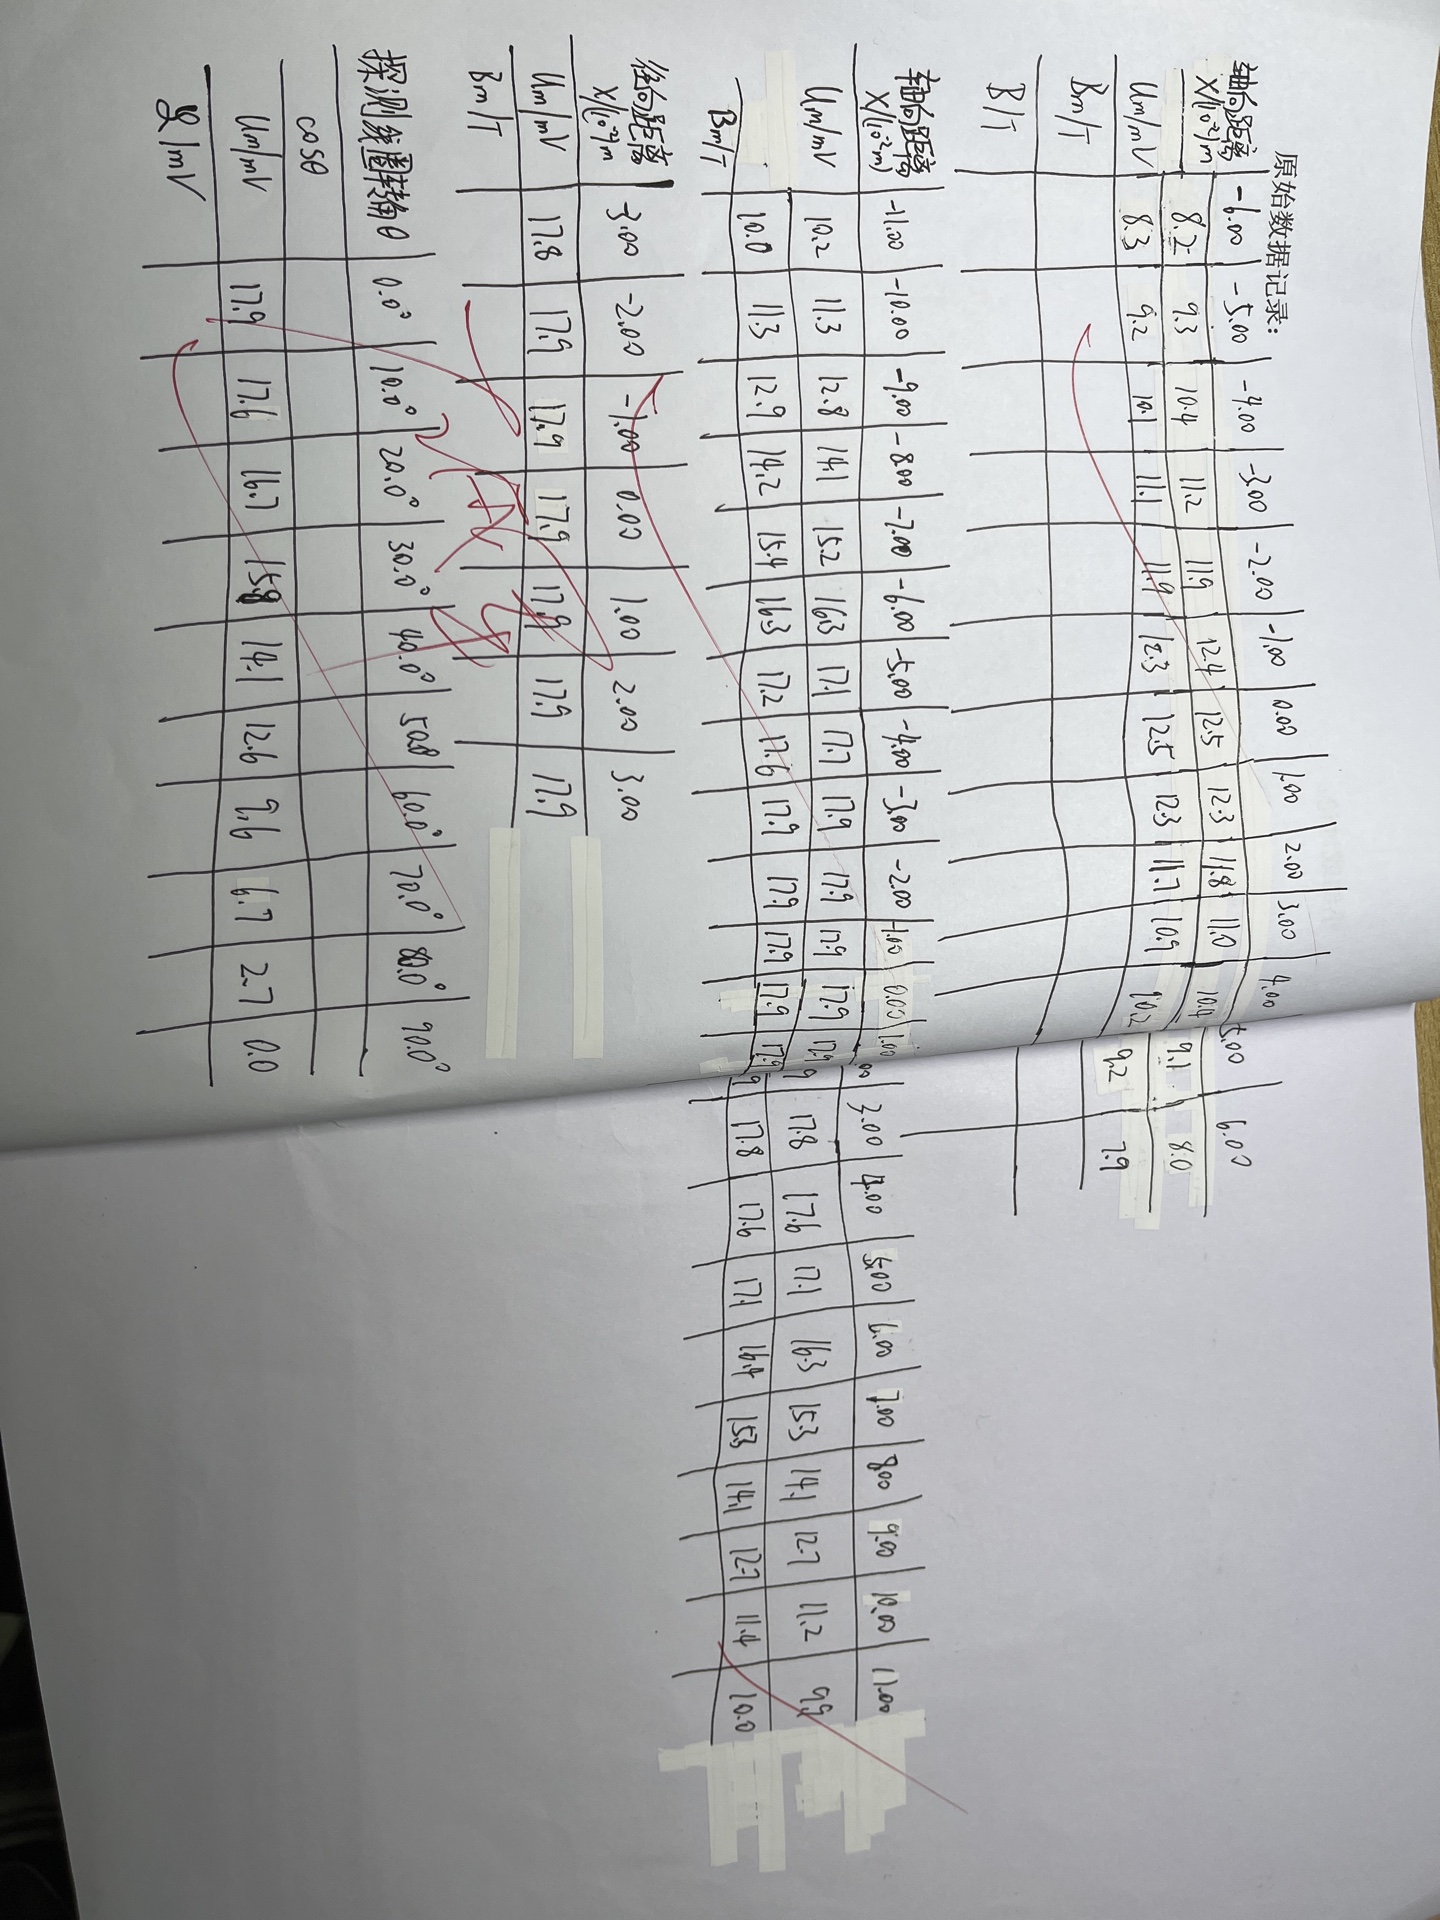 原始数据记录:
轴向距离 X/(10⁻²)m -6.00 -5.00 -4.00 -3.00 -2.00 -1.00 0.00 1.00 2.00 3.00 4.00 5.00 6.00
Um/mV 8.2 9.3 10.4 11.2 11.9 12.4 12.5 12.3 11.8 11.0 10.4 9.1 8.0
8.3 9.2 10.1 11.1 11.9 12.3 12.5 12.3 11.7 10.9 10.2 9.2 7.9
Bm/T
B/T
轴向距离 X/(10⁻²m) -11.00 -10.00 -9.00 -8.00 -7.00 -6.00 -5.00 -4.00 -3.00 -2.00 -1.00 0.00 1.00 00 3.00 4.00 5.00 6.00 7.00 8.00 9.00 10.00 11.00
Um/mV 10.2 11.3 12.8 14.1 15.2 16.3 17.1 17.7 17.9 17.9 17.9 17.9 17.9 9 17.8 17.6 17.1 16.3 15.3 14.1 12.7 11.2 9.9
10.0 11.3 12.9 14.2 15.4 16.3 17.2 17.6 17.9 17.9 17.9 17.9 17.9 9 17.8 17.6 17.1 16.4 15.3 14.1 12.7 11.4 10.0
Bm/T
径向距离 X/(10⁻²)m -3.00 -2.00 -1.00 0.00 1.00 2.00 3.00
Um/mV 17.8 17.9 17.9 17.9 17.9 17.9 17.9
Bm/T
探测线圈转角θ 0.0° 10.0° 20.0° 30.0° 40.0° 50.0 60.0° 70.0° 80.0° 90.0°
cosθ
Um/mV 17.9 17.6 16.7 15.8 14.1 12.6 9.6 6.7 2.7 0.0
/mV